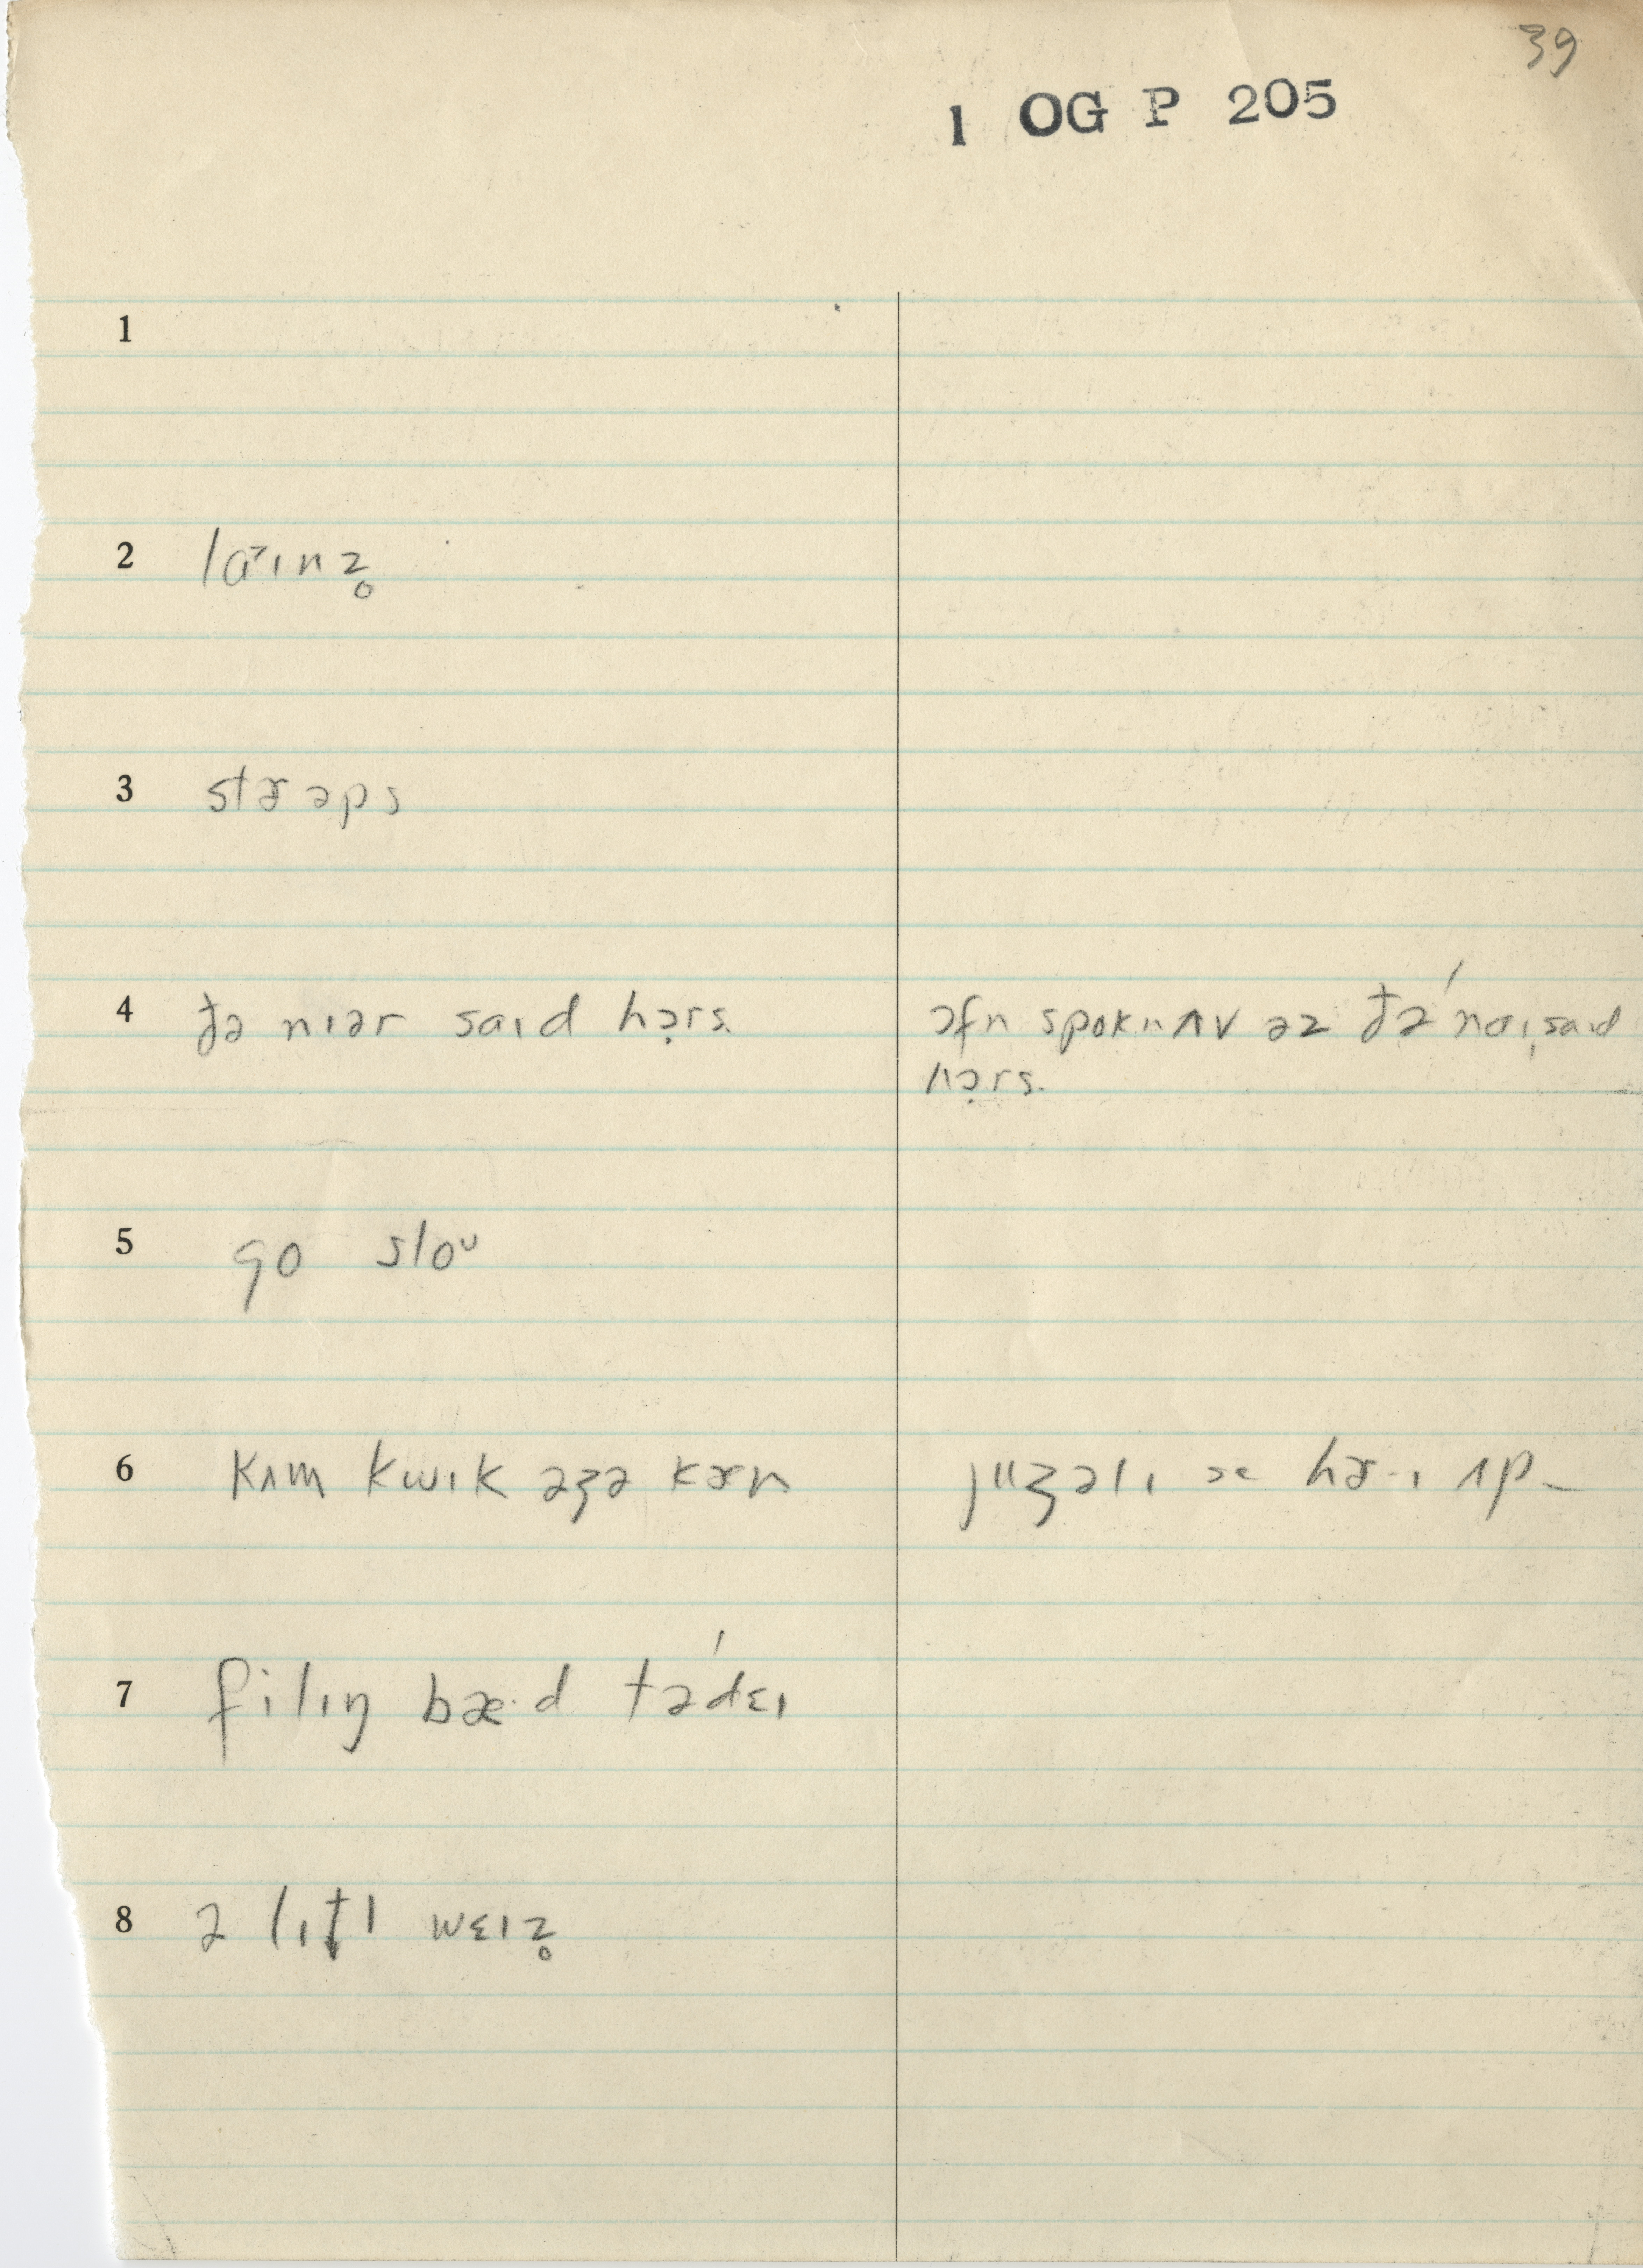 39
1 OG P 205
1
2 laɪnz̥
3 stræəps
4 ðə nɪər saɪd hɔ̣rs. ɔfn spokn ʌv əz ðə́ naɪ saɪd
hɔ̣rs.
5 go sloᴜ
6 kʌm kwɪk əʒə kæn juʒəlɪ hʌp
7 filɪŋ bæ·d tədɛ́ɪ
8 ə lɪt̬l wɛɪz̥